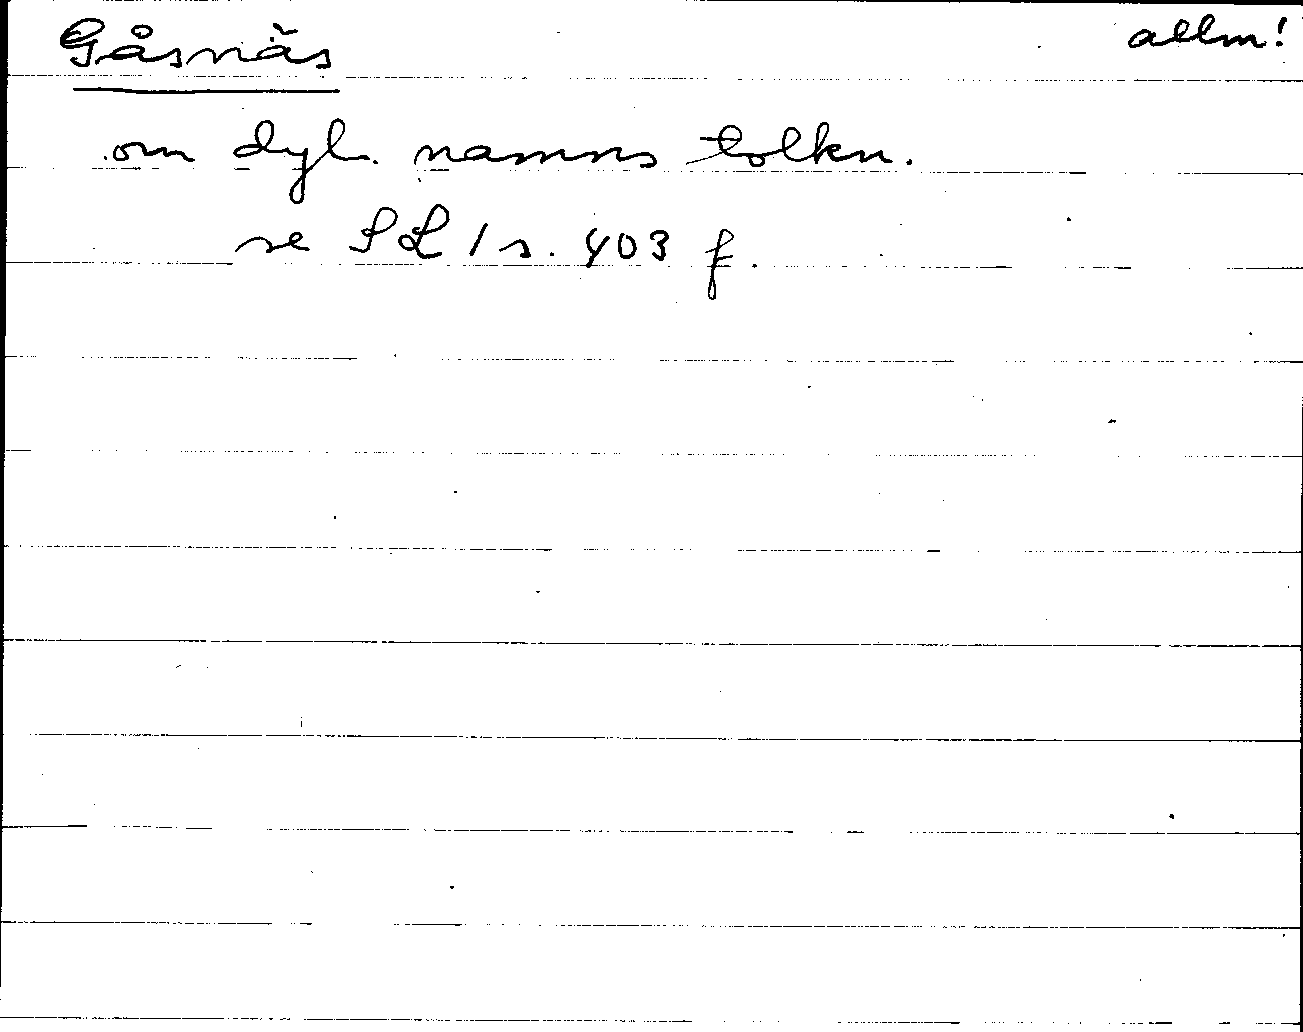 Gåsnäs allm!
om dyl. namns tolkn.
se SL 1 s. 403 f.